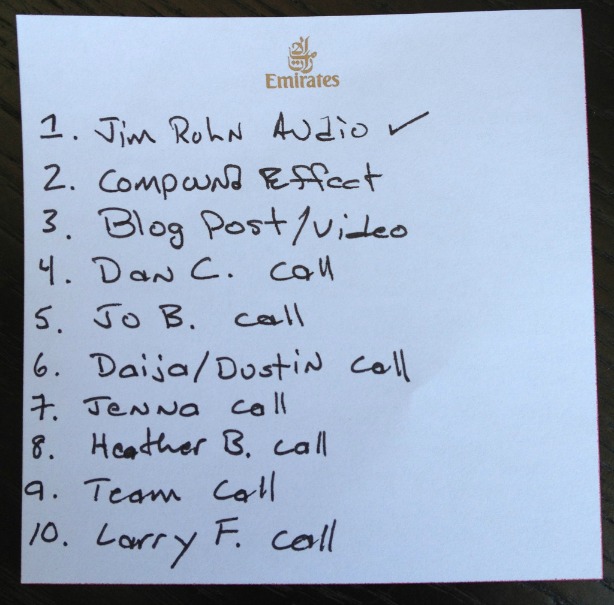 Emirates
1. Jim Rohn Audio ✓
2. Compound Effect
3. Blog Post/Video
4. Dan C. call
5. Jo B. call
6. Daija/Dustin call
7. Jenna call
8. Heather B. call
9. Team call
10. Larry F. call